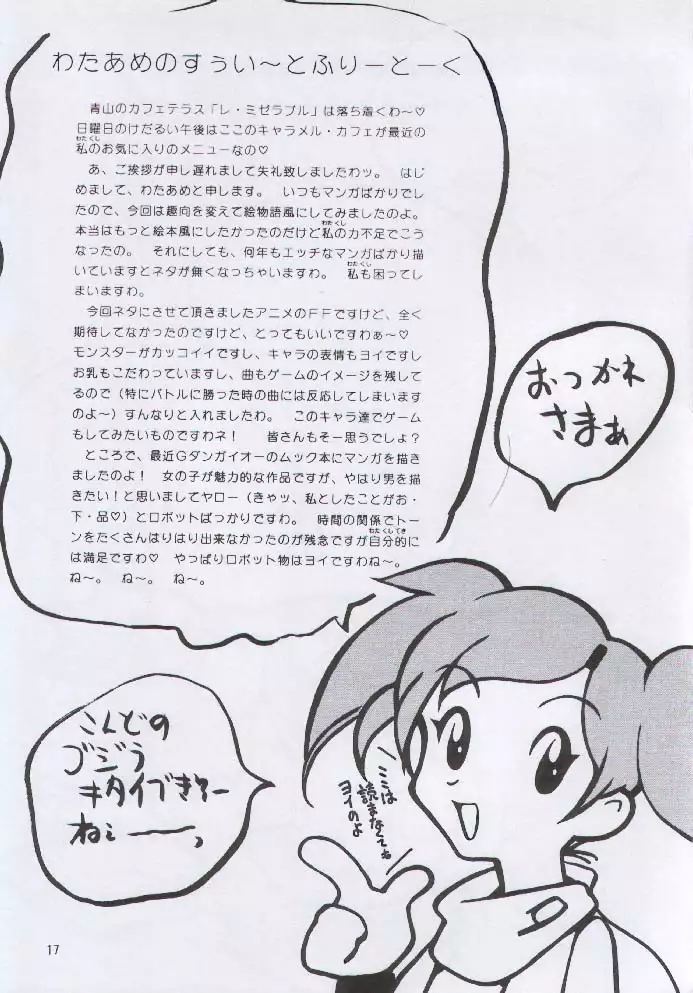 わたあめのすぅい～とふりーとーく
青山のカフェテラス「レ・ミゼラブル」は落ち着くわ～♡
日曜日のけだるい午後はここのキャラメル・カフェが最近の
わたくし
私のお気に入りのメニューなの♡
あ、ご挨拶が申し遅れまして失礼致しましたわッ。 はじ
めまして、わたあめと申します。 いつもマンガばかりでし
たので、今回は趣向を変えて絵物語風にしてみましたのよ。
わたくし
本当はもっと絵本風にしたかったのだけど私の力不足でこう
なったの。 それにしても、何年もエッチなマンガばかり描
わたくし
いていますとネタが無くなっちゃいますわ。 私も困ってし
まいますわ。
今回ネタにさせて頂きましたアニメのＦＦですけど、全く
期待してなかったのですけど、とってもいいですわぁ～♡
モンスターがカッコイイですし、キャラの表情もヨイですし
お乳もこだわっていますし、曲もゲームのイメージを残して
るので（特にバトルに勝った時の曲には反応してしまいます
のよ～）すんなりと入れましたわ。 このキャラ達でゲーム
もしてみたいものですわネ！ 皆さんもそー思うでしょ？
ところで、最近Ｇダンガイオーのムック本にマンガを描き
ましたのよ！ 女の子が魅力的な作品ですが、やはり男を描
きたい！と思いましてヤロー（きゃッ、私としたことがお・
下・品♡）とロボットばっかりですわ。 時間の関係でトー
わたくしてき
ンをたくさんはりはり出来なかったのが残念ですが自分的に
は満足ですわ♡ やっぱりロボット物はヨイですわね～。
ね～。 ね～。 ね～。
おつかれ
さまぁ
こんどの
ゴジラ
キタイブキ
ねぇ――っ
ここは
読まなくても
ヨイのよ
17